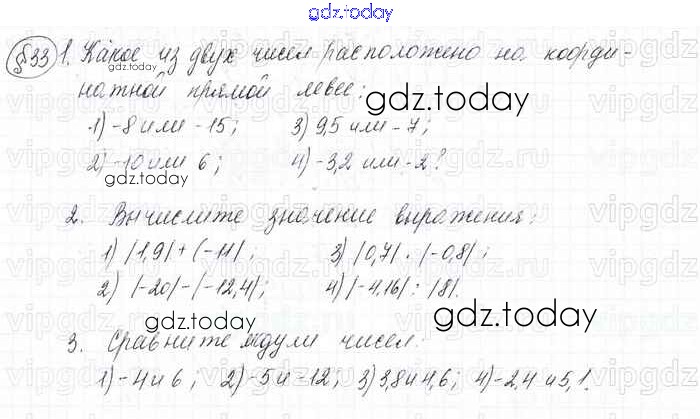 gdz.today
§33 1. Какое из двух чисел расположено на коорди-
натной прямой левее:
gdz.today
gdz.today
1) -8 или -15; 3) 9,5 или -7;
2) -10 или 6; 4) -3,2 или -2?
gdz.today
2. Вычислите значение выражения:
1) |1,9| + |-11|; 3) |0,7| · |-0,8|;
2) |-20| - |-12,4|; 4) |-4,16| : |8|.
gdz.today
gdz.today
3. Сравните модули чисел:
1) -4 и 6; 2) -5 и -12; 3) 3,8 и 4,6; 4) -2,4 и 5,1.